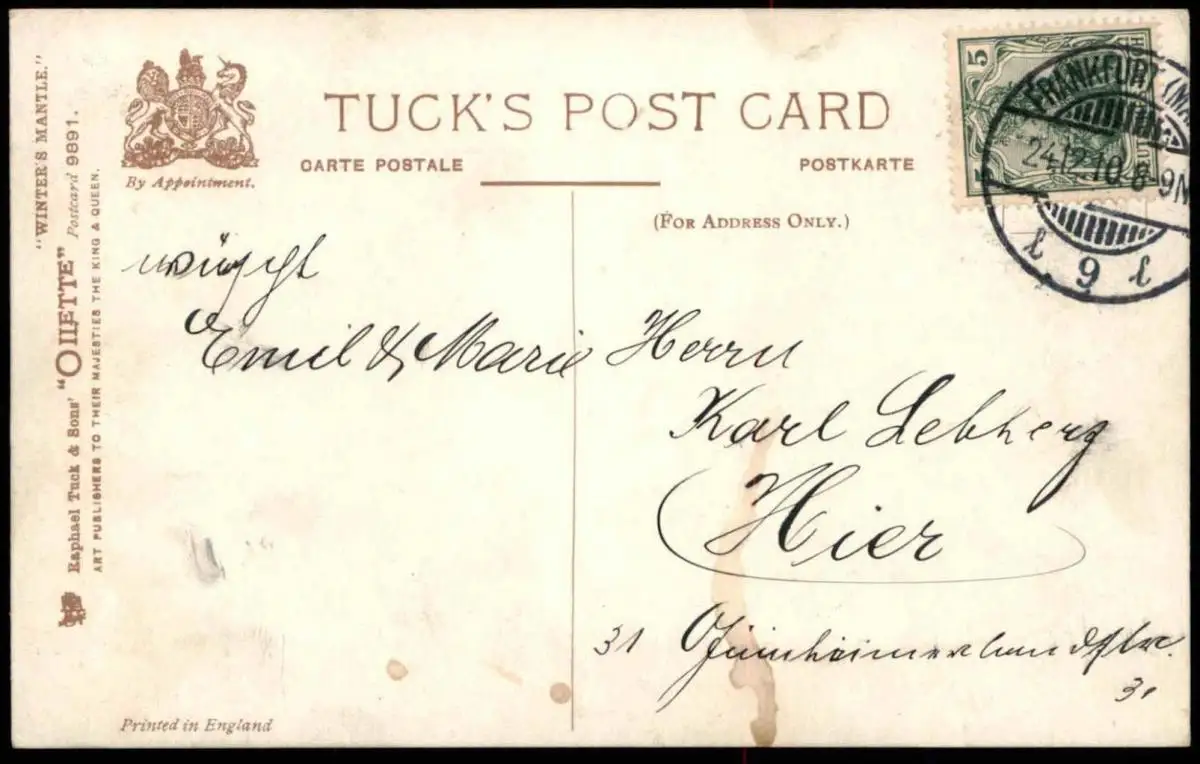 "WINTER'S MANTLE."
Raphael Tuck & Sons' "OILETTE" Postcard 9891.
ART PUBLISHERS TO THEIR MAJESTIES THE KING & QUEEN.
By Appointment.
TUCK'S POST CARD
CARTE POSTALE
POSTKARTE
(FOR ADDRESS ONLY.)
5
FRANKFURT (MA
24.12.10.8-9N
9
wünscht
Emil & Marie
Herrn
Karl Lebherz
Hier
31 Ginnheimerlandstr.
31
Printed in England